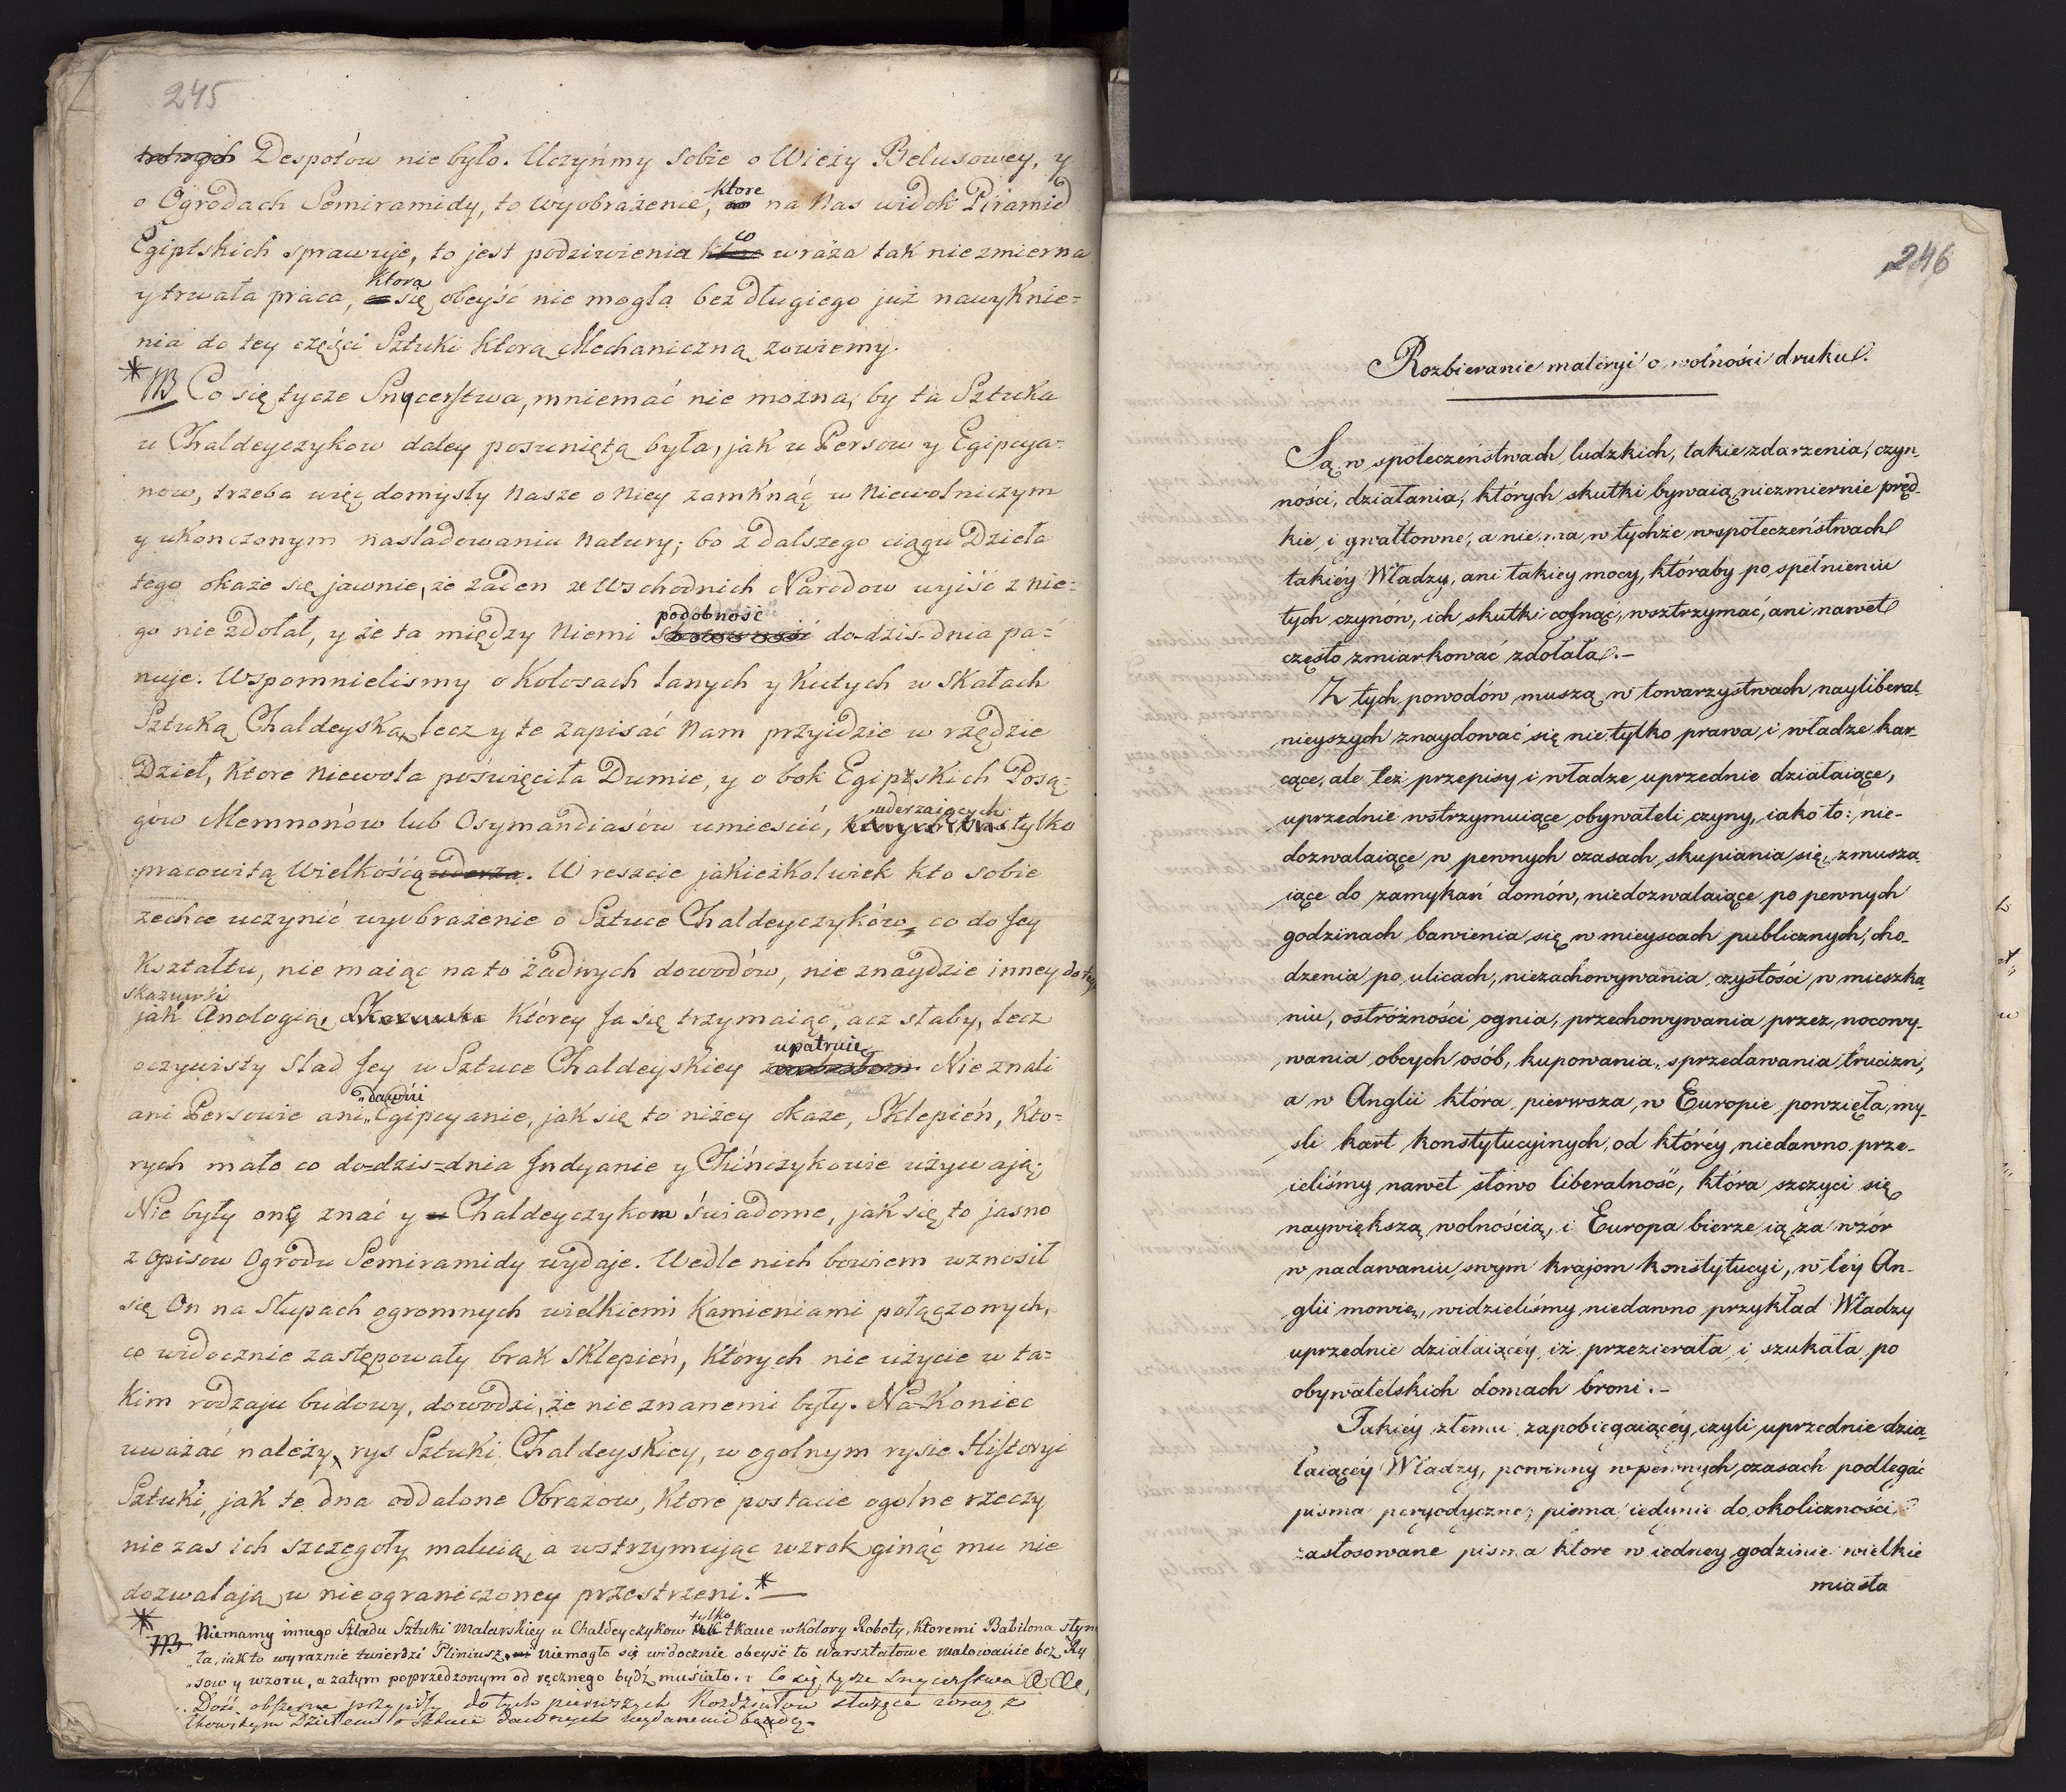 245
Despotów nie było. Uczyńmy sobie o Wieży Belusowey, y
o Ogrodach Semiramidy, to wyobrażenie, ktore na Nas widok Piramid
Egiptskich sprawuje, to jest podziwienia co wraża tak niezmierna
y trwała praca, ktora się obeyść nie mogła bez długiego już nawyknie=
nia do tey części Sztuki ktorą Mechaniczną zowiemy.
* NB Co się tycze Snycerstwa, mniemać nie można, by ta Sztuka
u Chaldeyczykow daley posuniętą była, jak u Persow y Egipcya=
now, trzeba więc domysły Nasze o Niey zamknąć w Niewolniczym
y ukonczonym nasladowaniu Natury; bo z dalszego ciągu Dzieła
tego okaże się jawnie, że żaden ze Wschodnich Narodow wyiść z nie=
go nie zdołał, y że ta między Niemi podobność do-dziś-dnia pa=
nuje. Wspomnielismy o Kolosach lanych y Kutych w Skałach
Sztuką Chaldeyską, lecz y te zapisać Nam przyidzie w rzędzie
Dzieł, ktore Niewola poświęciła Dumie, y o bok Egipskich Posą=
gów Memnonów lub Osymandiasów umieścić, uderzających tylko
pracowitą Wielkością uderza. W reszcie jakieżkolwiek kto sobie
zechce uczynić wyobrażenie o Sztuce Chaldeyczyków, co do Jey
Kształtu, nie maiąc na to żadnych dowodów, nie znaydzie inney do tey
skazuwki
jak Anologią, Którey Ja się trzymaiąc, acz słaby, lecz
oczywisty slad Jey w Sztuce Chaldeyskiey upatruię. Nie znali
ani Persowie ani dawni Egipcyanie, jak się to niżey okaże, Sklepień, kto=
rych mało co do=dzis=dnia Jndyanie y Chińczykowie używają;
Nie były one znać y Chaldeyczykom świadome, jak się to jasno
z opisow Ogrodu Semiramidy wydaje. Wedle nich bowiem wznosił
się On na Słupach ogromnych wielkiemi Kamieniami połączonych,
co widocznie zastępowały brak Sklepień, Których nie użycie w ta=
Kim rodzaju budowy, dowodzi, że nie znanemi były. Na Koniec
uważać należy, rys Sztuki Chaldeyskiey, w ogolnym rysie Historyi
Sztuki, jak te dna oddalone Obrazow, Ktore postacie ogolne rzeczy
nie zas ich szczegoły maluią, a wstrzymując wzrok ginąć mu nie
dozwalają w nieograniczoney przestrzeni.*—
* NB Niemamy innego Sladu Sztuki Malarskiey u Chaldeyczykow tylko tkane w Kolory Roboty, Ktoremi Babilona słyn
„ła, iak to wyraznie twierdzi Pliniusz, Niemogło się widocznie obeyść to warsztatowe Malowanie bez Ry
„sow y wzoru, a zatym poprzedzonym od ręcznego bydź musiało. Co się tycze Snycerstwa &c &c,
Dość obszerne przypisy do tych pierwszych Rozdziałow służące wraz z
Dziełem o Sztuce dawnych wydanemi będą.
246
Rozbieranie materyi o wolności druku.
Są w społeczeństwach ludzkich, takie zdarzenia, czyn-
ności, działania, których skutki bywaią niezmiernie pręd-
kie, i gwałtowne, a nie ma w tychże współeczeństwach
takiéy Władzy, ani takiey mocy, któraby po spełnieniu
tych czynów, ich skutki cofnąć, wsztrzymać, ani nawet
często zmiarkować zdołała.–
Z tych powodów muszą w towarzystwach nayliberal-
nieyszych znaydować się nie tylko prawa i władze kar-
cące, ale też przepisy i władze uprzednie działaiące,
uprzednie wstrzymuiące obywateli czyny, iako to: nie-
dozwalaiące w pewnych czasach skupiania się, zmusza-
iące do zamykań domów, niedozwalaiące po pewnych
godzinach bawienia się w mieyscach publicznych, cho-
dzenia po ulicach, niezachowywania czystości w mieszka-
niu, ostróżności ognia, przechowywania przez nocowy-
wania obcych osób, kupowania, sprzedawania trucizn,
a w Anglii która pierwsza w Europie powzięła my-
śli kart konstytucyinych, od któréy niedawno prze-
ieliśmy nawet słowo liberalność, która szczyci się
naywiększą wolnością, i Europa bierze ią za wzór
w nadawaniu swym krajom konstytucyi, w téy An-
glii mowię, widzieliśmy niedawno przykład Władzy
uprzednie działaiącéy, iż przezierała i szukała po
obywatelskich domach broni.–
Takiéy złemu zapobiegaiącéy, czyli uprzednie dzia-
łaiącéy Władzy, powinny w pewnych czasach podlegać
pisma peryodyczne, pisma iedynie do okoliczności
zastosowane pisma które w iedney godzinie wielkie
miasta